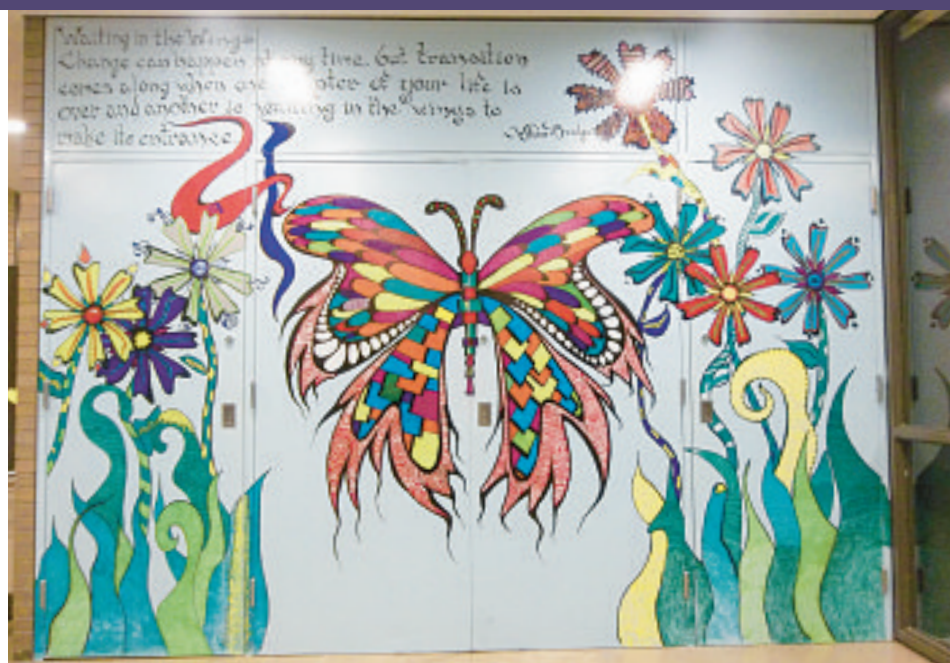 Waiting in the Wings
Change can happen at any time. but transition
comes along when one chapter of your life is
over and another is waiting in the wings to
make its entrance